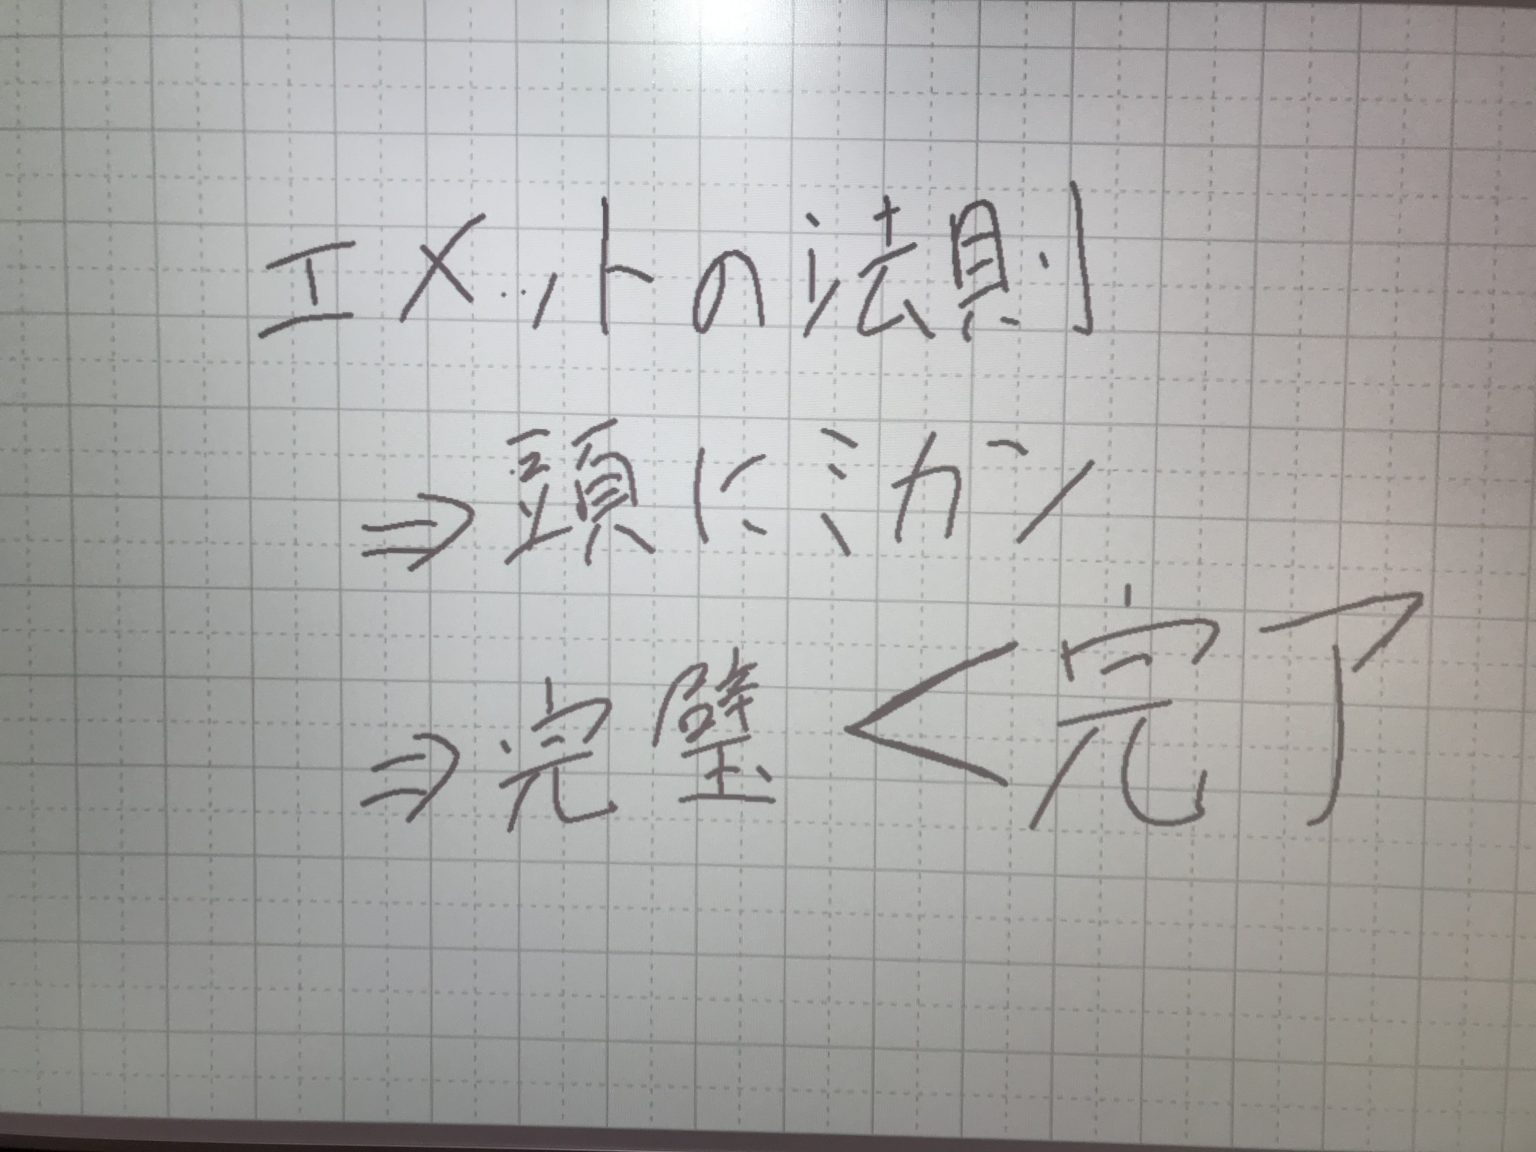 エメットの法則
⇒頭にミカン
⇒完璧<完了